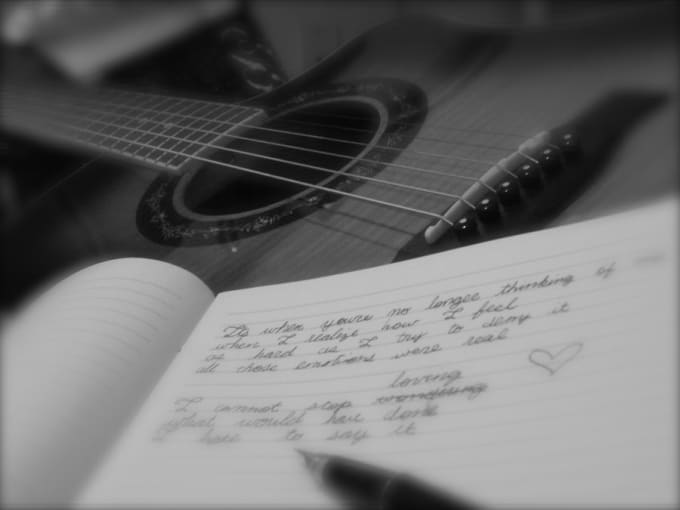 Is when you're no longer thinking of
when I realize how I feel
as hard as I try to deny it
all those emotions were real
loving
I cannot stop
what would have done
I hate to say it